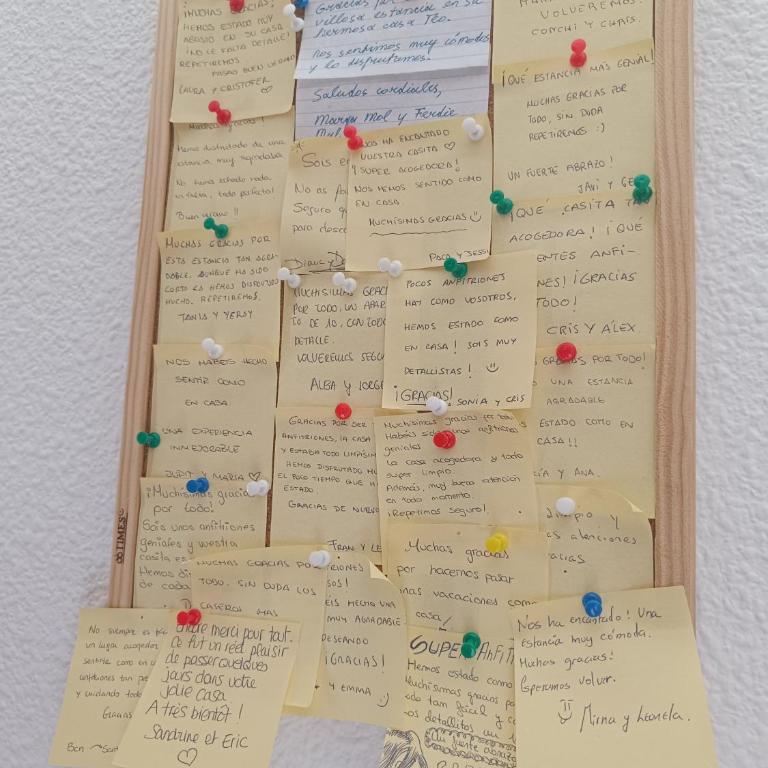 ¡MUCHAS GRACIAS!
HEMOS ESTADO MUY
EN SU CASA
¡NO LE FALTA DETALLE!
REPETIREMOS
LAURA Y CRISTOFER
Gracias por
villosa estancia en su
hermosa casa Teo.
Nos sentimos muy cómodos
y lo disfrutamos.
Saludos cordiales,
Mol y Ferdie
VOLVEREMOS.
CONCHI Y CHRIS.
¡QUÉ ESTANCIA MÁS GENIAL!
MUCHAS GRACIAS POR
TODO, SIN DUDA
REPETIREMOS :)
UN FUERTE ABRAZO!
JAVI Y GE
Muchas gracias!
Hemos disfrutado de una
estancia muy agradable
No hemos echado nada
en falta, todo perfecto!
Sois
No os
Seguro q
para desco
NOS HA ENCANTADO
VUESTRA CASITA
¡SUPER ACOGEDORA!
NOS HEMOS SENTIDO COMO
EN CASA.
MUCHÍSIMAS GRACIAS
PACO Y JESSI
¡QUÉ CASITA TA
ACOGEDORA! ¡QUÉ
ENTES ANFI-
NES! ¡GRACIAS
TODO!
CRIS Y ALEX.
MUCHAS GRACIAS POR
ESTA ESTANCIA TAN AGRA-
DABLE. AUNQUE HA SIDO
CORTA LA HEMOS DISFRUTADO
MUCHO. REPETIREMOS.
TANIA Y YERAY
MUCHÍSIMAS GRACI
POR TODO, UN APAR
TO DE 10, CON TODO
DETALLE.
VOLVEREMOS SEGU
ALBA Y JORGE
POCOS ANFITRIONES
HAY COMO VOSOTROS,
HEMOS ESTADO COMO
EN CASA! SOIS MUY
DETALLISTAS!
¡GRACIAS!
SONIA Y CRIS
GRACIAS POR TODO!
UNA ESTANCIA
AGRADABLE
ESTADO COMO EN
CASA!!
ÍA Y ANA.
NOS HABÉIS HECHO
SENTIR COMO
EN CASA
UNA EXPERIENCIA
INMEJORABLE
JUDIT Y MARÍA
GRACIAS POR SER
ANFITRIONES, LA CASA
Y ESTABA TODO LIMPÍSIM
HEMOS DISFRUTADO MU
EL POCO TIEMPO QUE H
ESTADO
GRACIAS DE NUEVO
FRAN Y LE
Muchísimas gracias por todo!
Habéis sido unos anfitriones
geniales
La casa acogedora y todo
super limpio.
Además, muy buena atención
en todo momento.
¡Repetimos seguro!
¡Muchísimas gracias
por todo!
Sois unos anfitriones
geniales y vuestra
casita es
Hemos di
de cada
limpio y
as atenciones
acias
MUCHAS GRACIAS POR
TODO. SIN DUDA LOS
CASEROS MÁS
RIONES
SOS!
EIS HECHO UNA
MUY AGRADABLE
DESEANDO
¡GRACIAS!
Y EMMA :)
Muchas gracias
por hacernos pasar
unas vacaciones como
casa!
No siempre es fác
un lugar acogedor
sentirse como en c
anfitriones tan pe
y cuidando todo
Gracias
Ben
Encore merci pour tout.
Ce fut un réel plaisir
de passer quelques
jours dans votre
jolie casa.
A très bientôt !
Sandrine et Eric
SUPER ANFITR
Hemos estado como
Muchísimas gracias po
todo tan fácil y c
os detallitos un
Un fuerte abrazo
Nos ha encantado! Una
estancia muy cómoda.
Muchas gracias!
Esperamos volver.
Mirna y Leonela.
TIMES